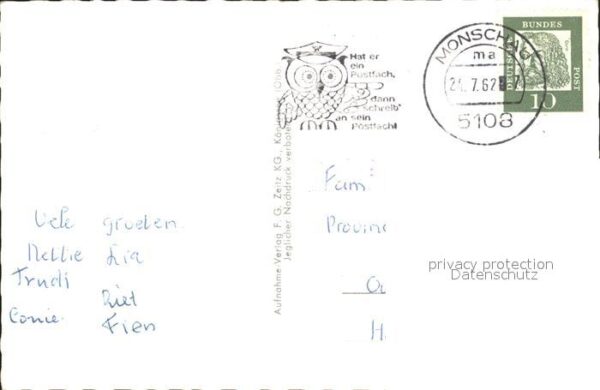 Vele groeten
Nellie Lia
Trudi Riet
Corrie Fien
Aufnahme-Verlag F. G. Zeitz KG.,
Jeglicher Nachdruck verboten
Hat er
ein
Postfach,
dann
schreib'
an sein
Postfach!
MONSCHAU
ma
7.62
5108
DEUTSCHE
BUNDES
POST
10
Fam
Provinc
H
privacy protection
Datenschutz